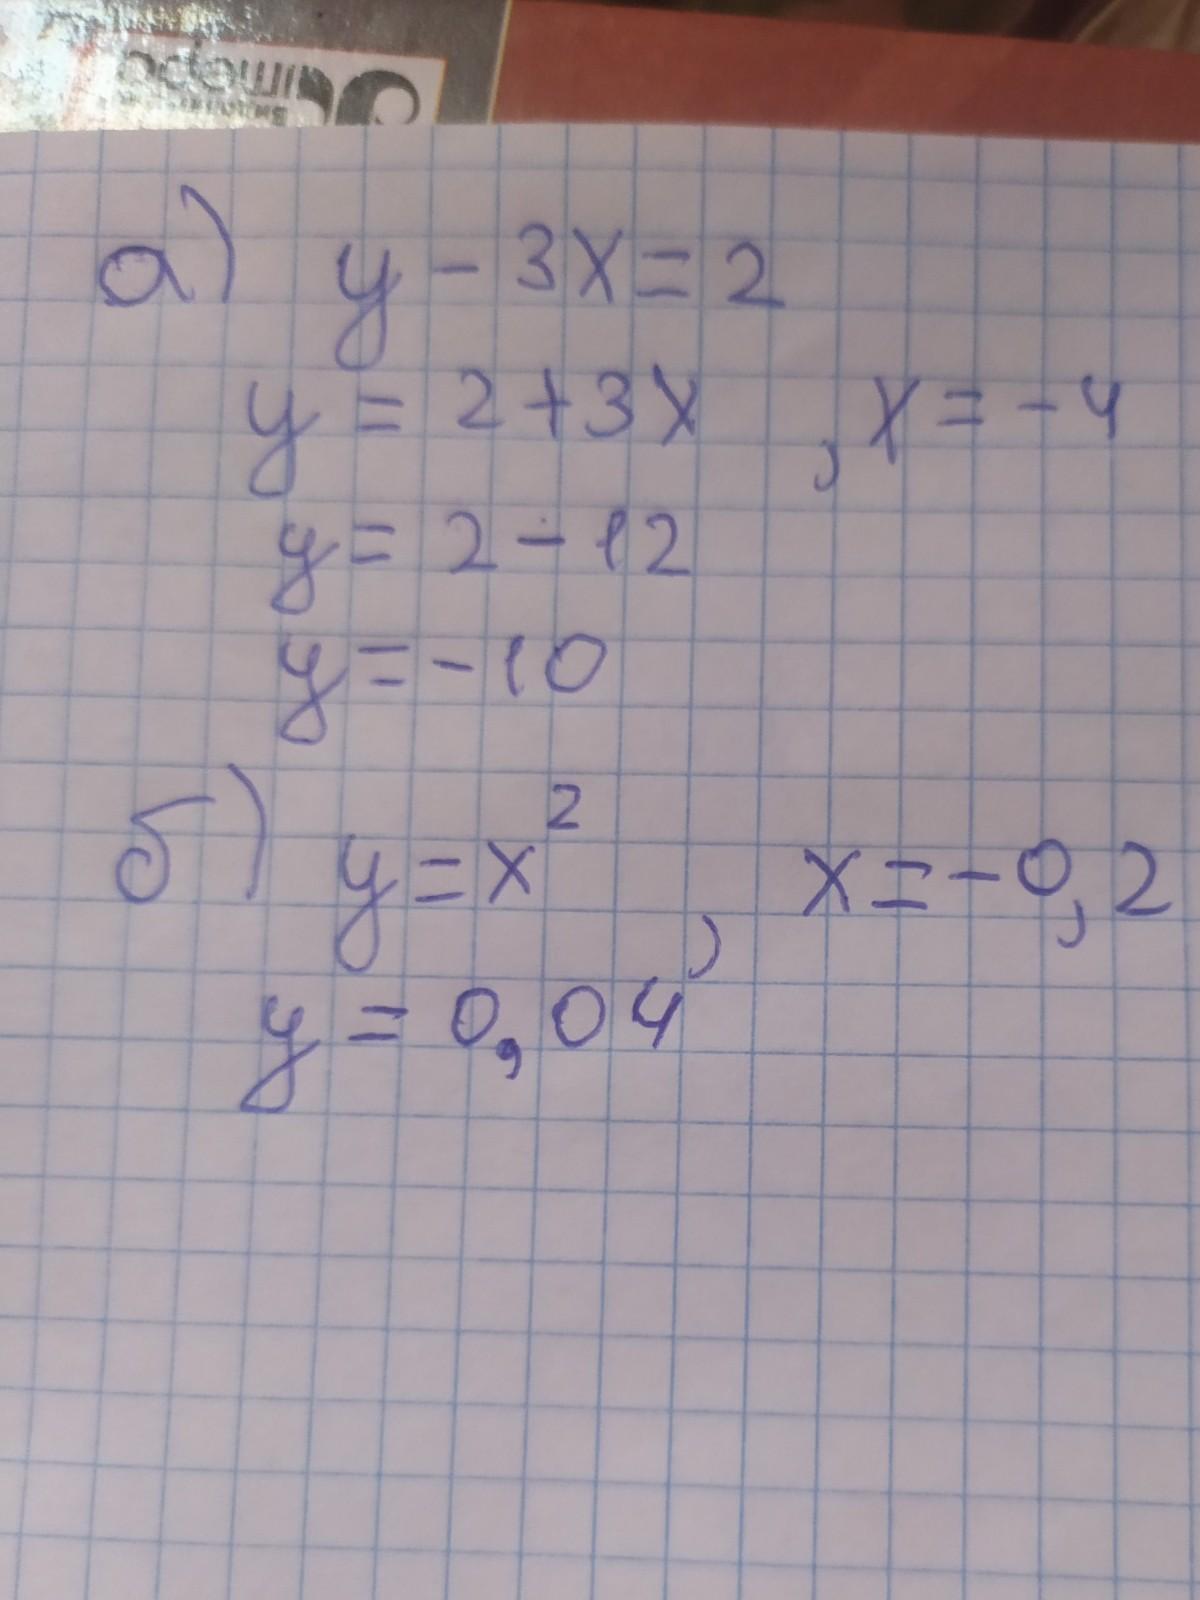 а) y - 3x = 2
y = 2 + 3x , x = -4
y = 2 - 12
y = -10
б) y = x² , x = -0,2
y = 0,04